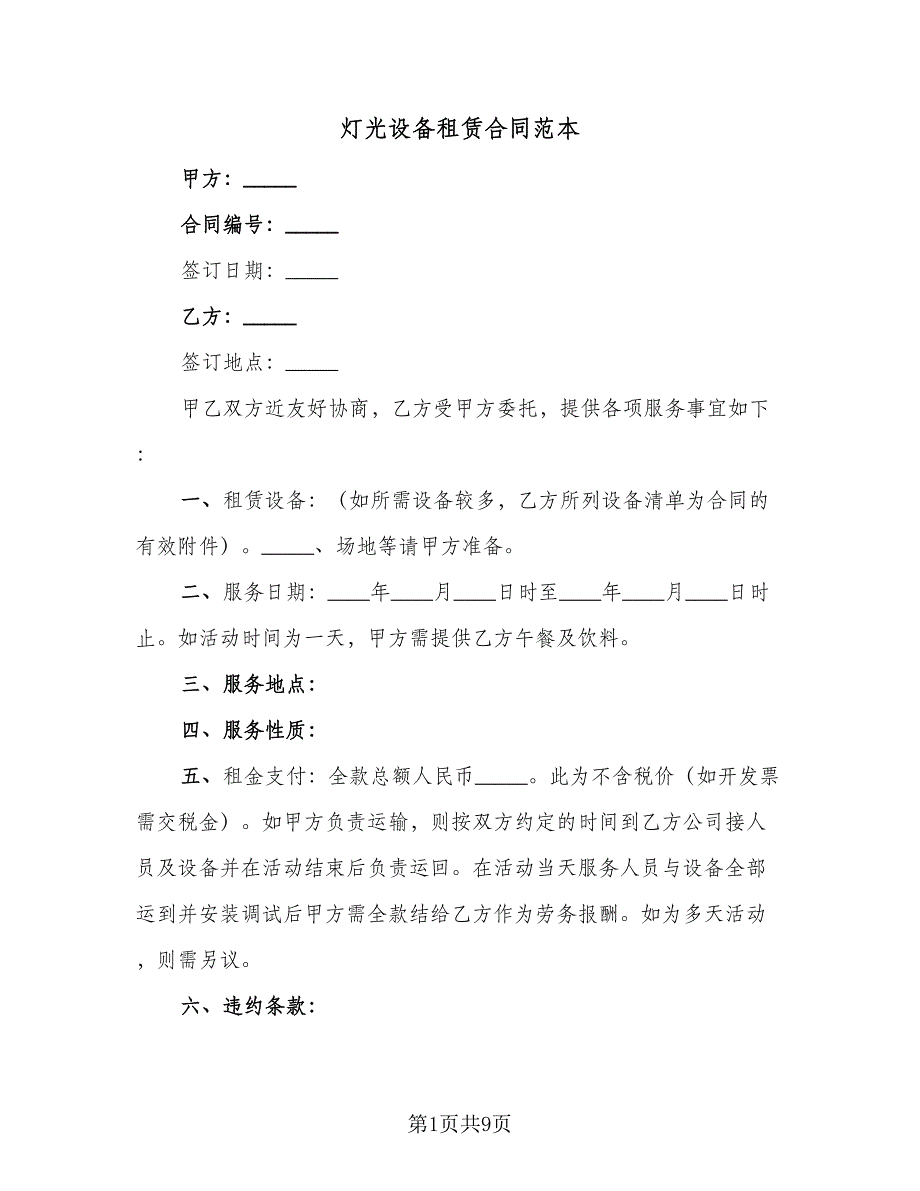 灯光设备租赁合同范本
甲方：_____
合同编号：_____
签订日期：_____
乙方：_____
签订地点：_____
甲乙双方近友好协商，乙方受甲方委托，提供各项服务事宜如下
：
一、租赁设备：（如所需设备较多，乙方所列设备清单为合同的
有效附件）。_____、场地等请甲方准备。
二、服务日期：____年____月____日时至____年____月____日时
止。如活动时间为一天，甲方需提供乙方午餐及饮料。
三、服务地点：
四、服务性质：
五、租金支付：全款总额人民币_____。此为不含税价（如开发票
需交税金）。如甲方负责运输，则按双方约定的时间到乙方公司接人
员及设备并在活动结束后负责运回。在活动当天服务人员与设备全部
运到并安装调试后甲方需全款结给乙方作为劳务报酬。如为多天活动
，则需另议。
六、违约条款：
第1页共9页